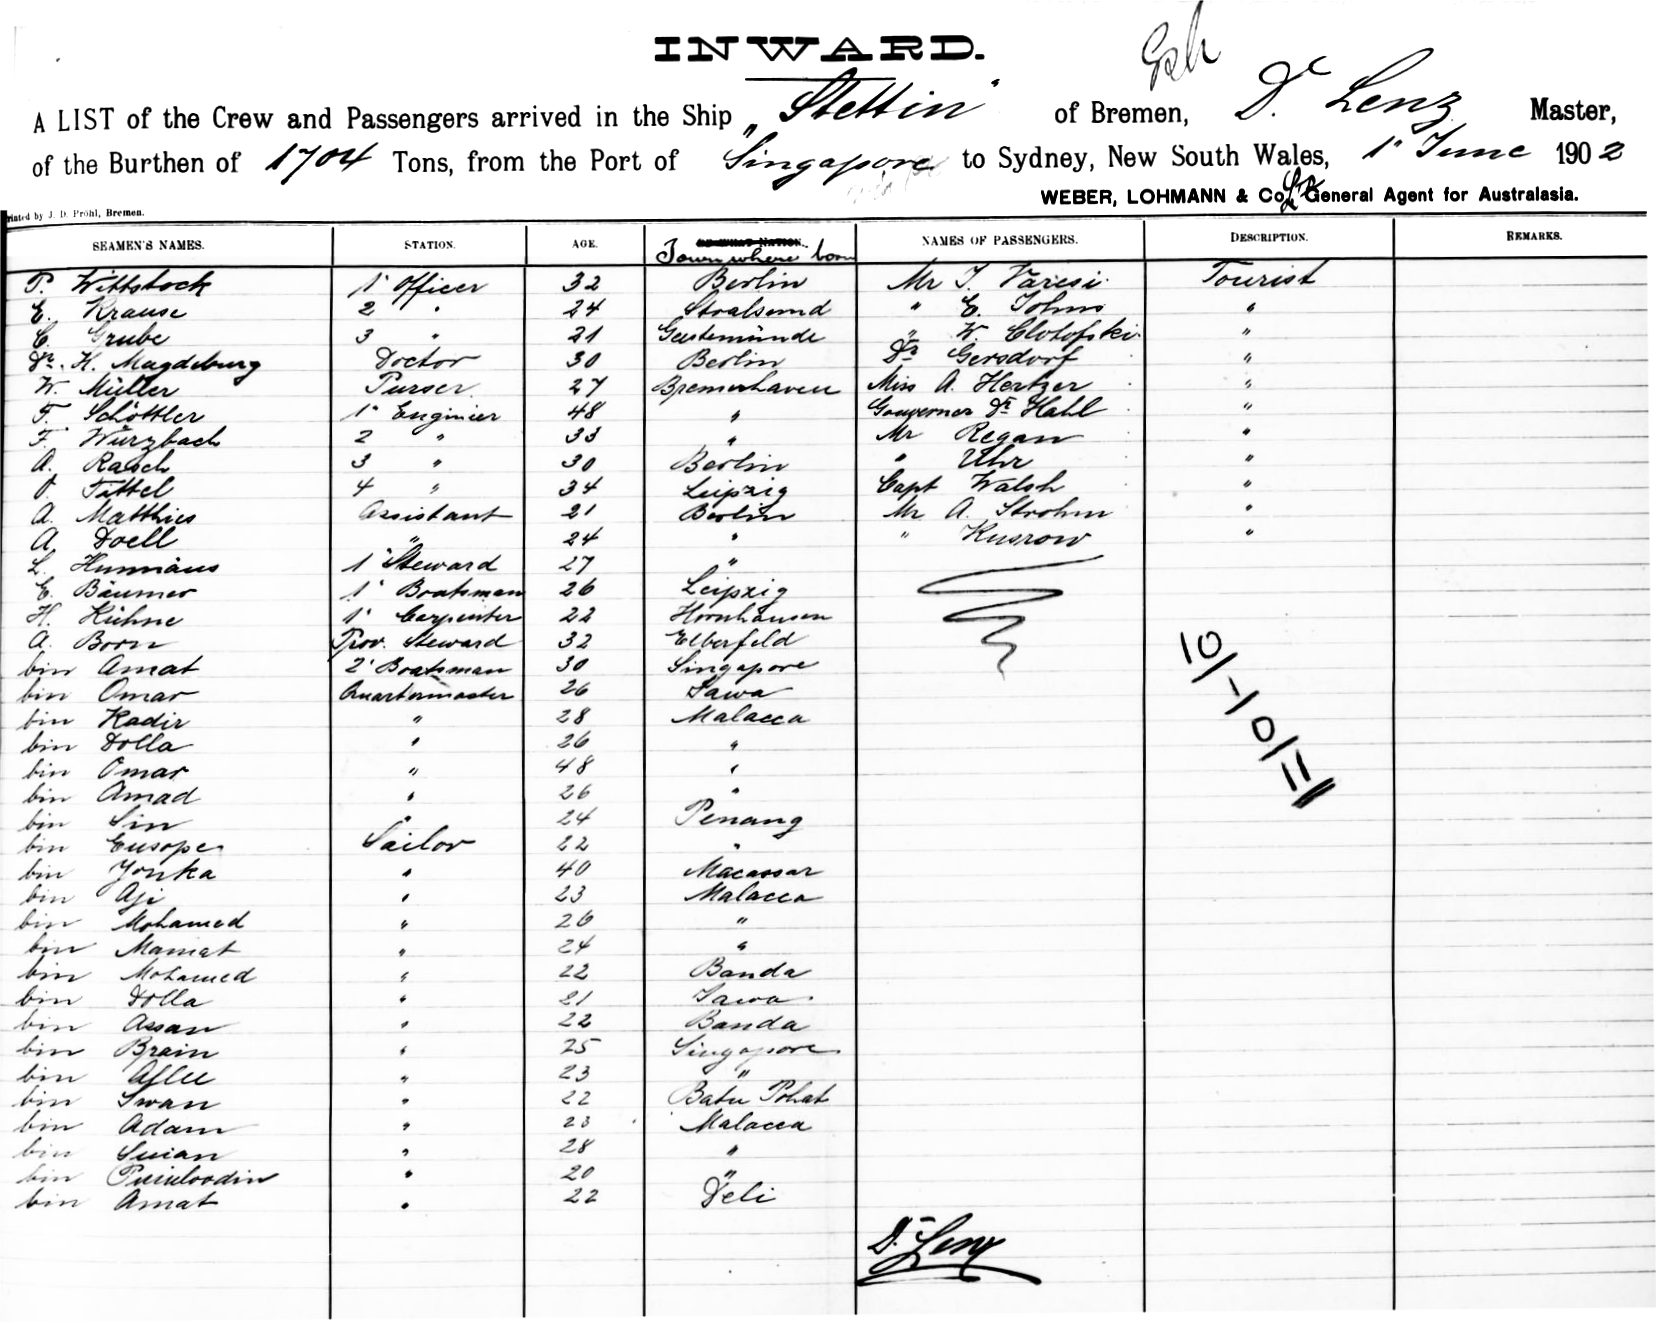 INWARD.
A LIST of the Crew and Passengers arrived in the Ship „Stettin" of Bremen, Dr Lenz Master,
of the Burthen of 1704 Tons, from the Port of Singapore to Sydney, New South Wales, 1" June 1902
WEBER, LOHMANN & Co General Agent for Australasia.
Printed by J. D. Pröhl, Bremen.
SEAMEN'S NAMES. STATION. AGE. OF WHAT NATION. Town where born NAMES OF PASSENGERS. DESCRIPTION. REMARKS.
P. Wittstock 1" Officer 32 Berlin Mr J. Varesi Tourist
E. Krause 2 " 24 Stralsund " E. Johns "
C. Grube 3 " 21 Geestemünde " W. Clotofski "
Dr. H. Magdeburg Doctor 30 Berlin Dr Gersdorf "
W. Müller Purser 27 Bremerhaven Miss A. Hertzer "
F. Schöttler 1" Enginier 48 " Gouverneur Dr Hahl "
F. Würzbach 2 " 33 " Mr Regan "
A. Rasch 3 " 30 Berlin " Uhr "
Tittel 4 " 34 Leipzig Capt Walsh "
A. Matthies Assistant 21 Berlin Mr A. Strohm "
A. Doell " 24 " " Kusrow "
L. 1" Steward 27 "
E. Bäumer 1" Boatsman 26 Leipzig
H. Kühne 1" Carpenter 22 Hornhausen
A. Born Prov. Steward 32 Elberfeld
bin Amat 2" Boatsman 30 Singapore
bin Omar Quartermaster 26 Jawa
bin Kadir " 28 Malacca
bin Dolla " 26 "
bin Omar " 48 "
bin Amad " 26 "
bin Sin " 24 Penang
bin Eusope Sailor 22 "
bin Yonka " 40 Macassar
bin Aji " 23 Malacca
bin Mohamed " 26 "
bin Mamat " 24 "
bin Mohamed " 22 Banda
bin Dolla " 21 Jawa
bin Assan " 22 Banda
bin Brain " 25 Singapore
bin Aflee " 23 "
bin Swan " 22 Batu Pohat
bin Adam " 23 Malacca
bin " 28 "
bin " 20 "
bin Amat " 22 Deli
10/-/0/11
Dr. Lenz